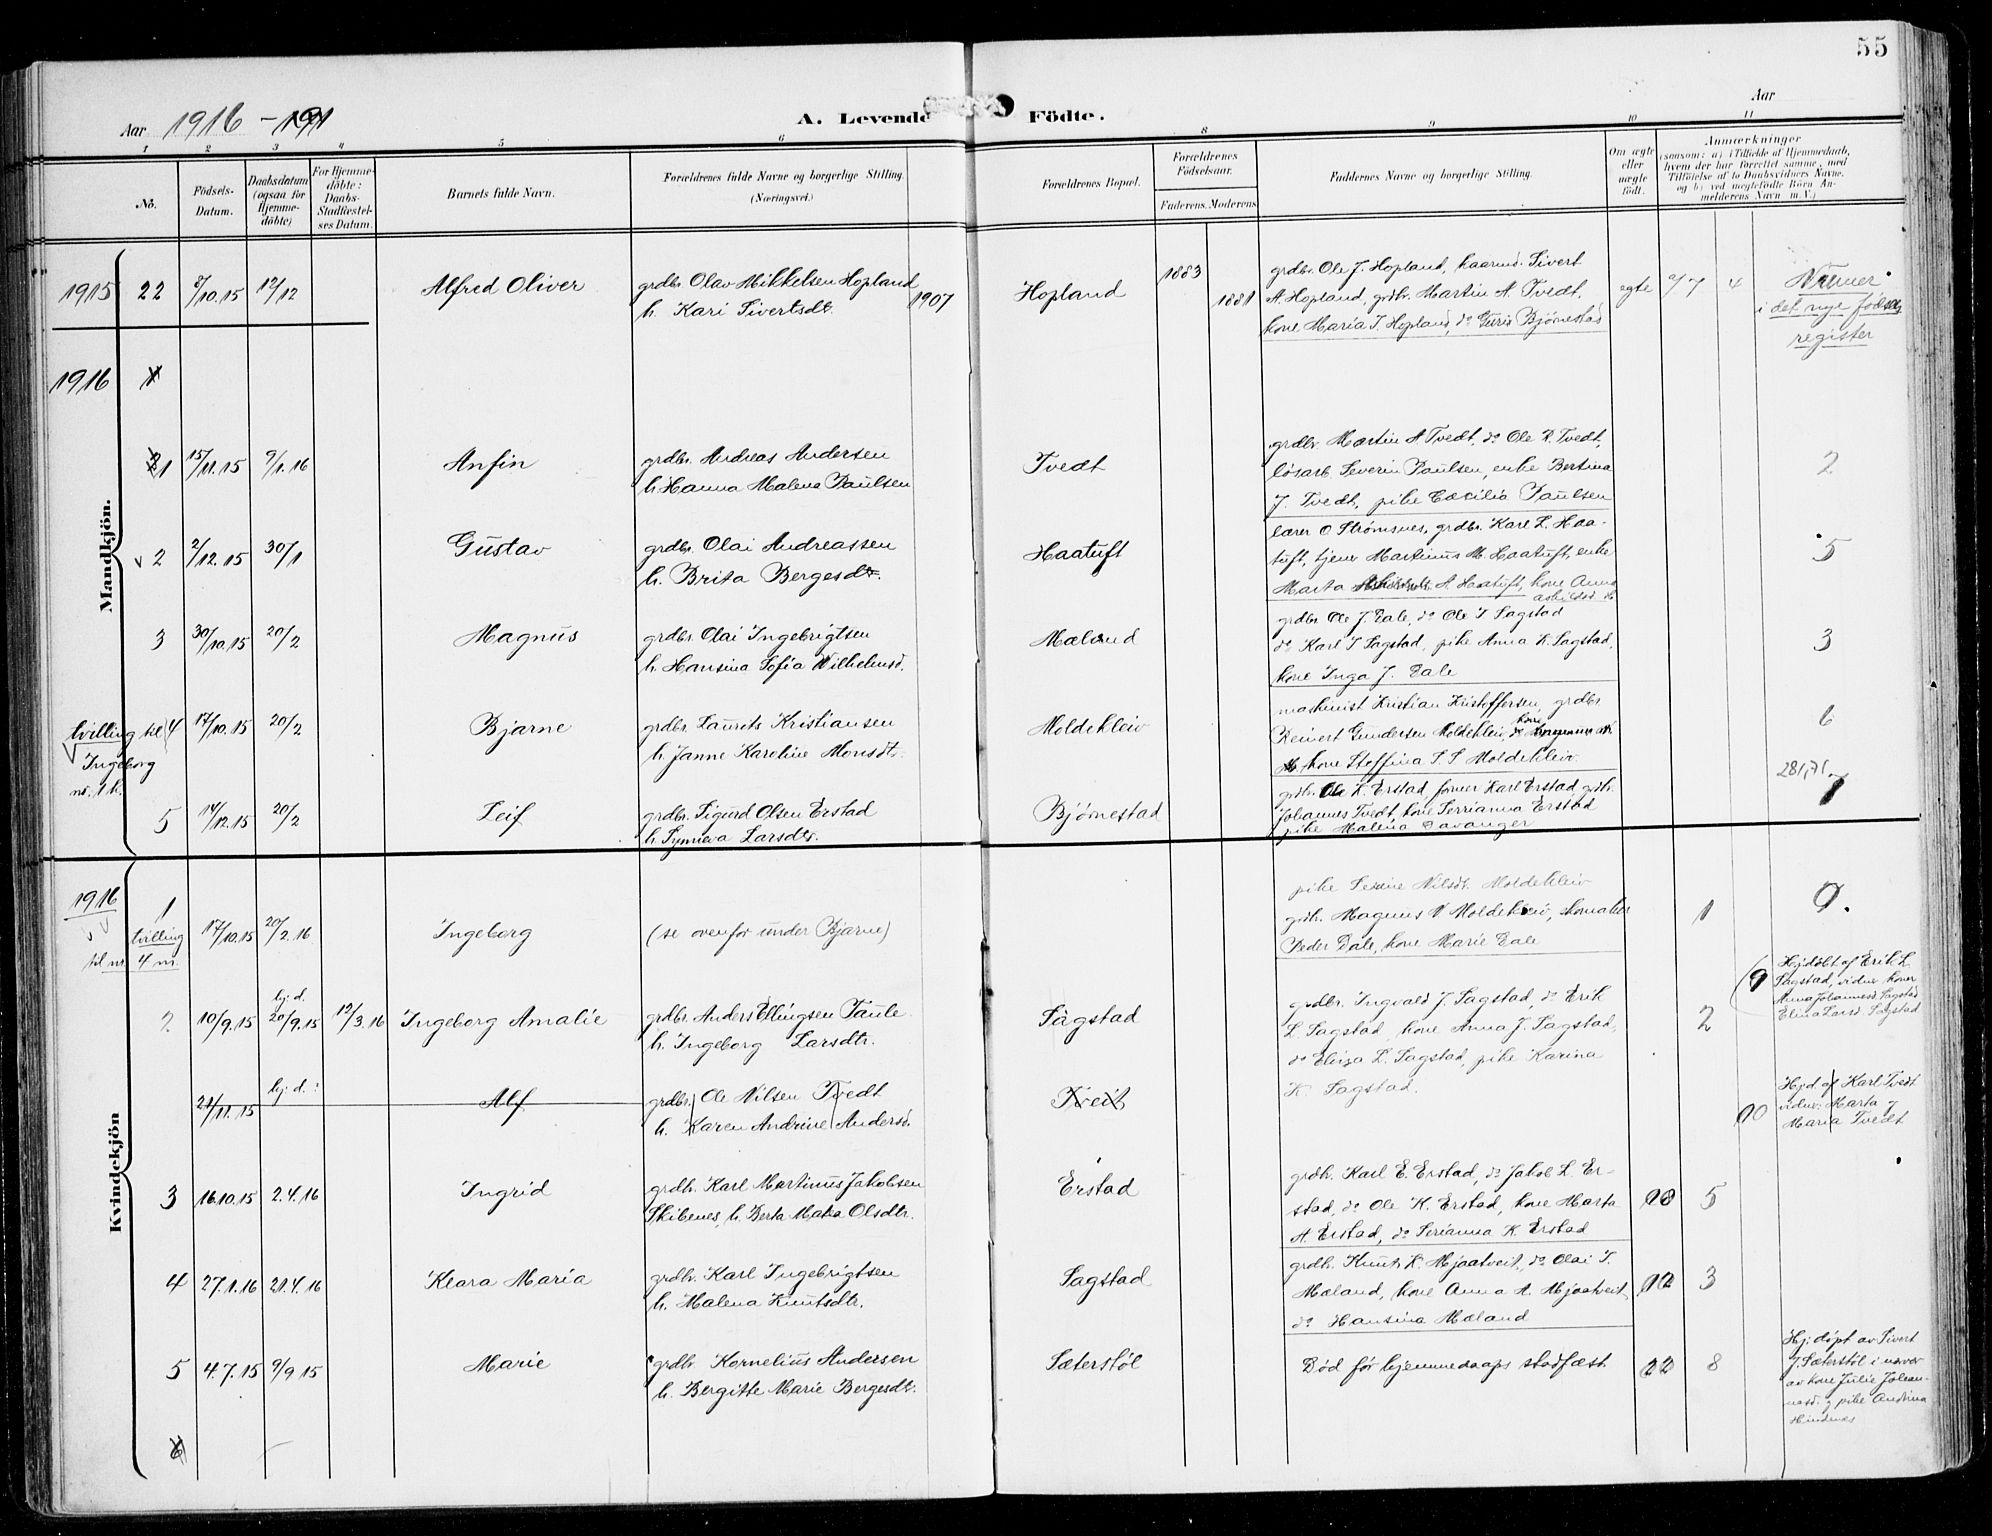 55
Aar 1916 - 191
A. Levende Födte.
Aar
1 2 3 4 5 6 8 9 10 11
No.
Födsels-Datum.
Daabsdatum (ogsaa for Hjemmedöbte)
For Hjemmedöbte: Daabs-Stadfæstelses Datum.
Barnets fulde Navn.
Forældrenes fulde Navne og borgerlige Stilling (Næringsvei.)
Forældrenes Bopæl.
Forældrenes Födselsaar.
Faderens. Moderens
Faddernes Navne og borgerlige Stilling.
Om ægte eller uægte födt.
Anmærkninger
(saasom: a) i Tilfælde af Hjemmedaab, hvem der har forrettet samme, med Tilföielse af to Daabsvidners Navne, og b) ved uægtefödte Börn Anmelderens Navn m.V.)
Mandkjön.
1915 22 8/10.15 12/12 Alfred Oliver
grdbr. Olav Mikkelsen Hopland
h. Kari Sivertsdt. 1907
Hopland 1883 1881
grdbr. Ole J. Hopland, haarnd. Sivert
A. Hopland, grdbr. Martin A. Tvedt,
kone Maria J. Hopland, do Guris Bjørnestad
egte 9/7 4
Numer
i det nye fødsels
register
1916 1
2 1 15/11.15 9/1.16 Anfin
grdbr. Andreas Andersen
h. Hanna Malena Paulsen
Tvedt
grdbr. Martin A Tvedt, do Ole R. Tvedt,
løsarb. Severin Paulsen, enke Bertina
J. Tvedt, pike Cæcilia Paulsen
2
v 2 2/12.15 30/1 Gustav
grdbr. Olai Andreassen
h. Brita Bergesdt.
Haatuft
lærer O Strømsnes, grdbr. Karl L. Haa-
tuft, tjener Martinus M. Haatuft, enke
Marta A Haatuft, kone Anna
5
3 30/10.15 20/2 Magnus
grdbr. Olai Ingebrigtsen
h. Hansina Sofia Vilhelmsd.
Mæland
grdbr. Ole J. Dale, do Ole I Sagstad
do Karl I Sagstad, pike Anna K. Sagstad,
kone Inga J. Dale
3
tvilling til 4 17/10.15 20/2 Bjarne
Ingeborg
nr. 1 k.
grdbr. Laurits Kristiansen
h. Janne Karoline Monsdt.
Moldekleiv
maskinist Kristian Kristoffersen, grdbr.
Reinert Gundersen Moldekleiv, do kone
kone Steffina S S Moldekleiv.
6
281,71
5 14/12.15 20/2 Leif
grdbr. Sigurd Olsen Erstad
h. Synneva Larsdtr.
Bjørnestad
grdbr. Ole K. Erstad, former Karl Erstad, grdbr.
Johannes Tvedt, kone Serrianna Erstad
pike Malena Davanger
7
Kvindekjön
1916 1 17/10.15 20/2.16 Ingeborg
tvilling
til nr. 4 m.
(se ovenfor under Bjarne)
pike Serine Nilsdt. Moldekleiv
grdbr. Magnus N Moldekleiv, skomaker
Peder Dale, kone Marie Dale
1
2 10/9.15 hj.d. 20/9.15 12/3.16 Ingeborg Amalie
grdbr. Anders Ellingsen Taule
h. Ingeborg Larsdtr.
Sagstad
grdbr. Ingvald J. Sagstad, do Erik
L Sagstad, kone Anna J. Sagstad,
do Eliza L. Sagstad, pike Karina
K. Sagstad.
2
9 Hj.døbt af Erik L
Sagstad, vidner kone
Anna Johannesd. Sagstad
Elina Larsd. Sagstad
21/11.15 hj.d. Alf
grdbr. Ole Nilsen Tvedt
h. Karen Andrine Andersd.
Tveit
10 Hj.d. af Karl Tvedt
vidner: Marta J
Maria Tvedt
3 16.10.15 2.4.16 Ingrid
grdbr. Karl Martinus Jakobsen
Skibenes, h. Berta Maria Olsdtr.
Erstad
grdbr. Karl E. Erstad, do Jakob L Er-
stad, do Ole K. Erstad, kone Marta
A. Erstad, do Serianna K Erstad
10 5
4 27.1.16 21.4.16 Klara Maria
grdbr. Karl Ingebrigtsen
h. Malena Knutsdtr.
Sagstad
grdbr. Knut K. Mjaatveit, do Olai I.
Mæland, kone Anna A. Mjaatveit,
do Hansina Mæland
12 3
5 4.7.15 9/9 15 Marie
grdbr. Kornelius Andersen
h. Bergitte Marie Bergesdtr.
Sæterstøl
Død før hjemmedaaps stadfæst
22 8
Hj.døpt av Sivert
J. Sæterstøl i nærvær
av kone Julie Johan-
nesd. og pike Andrina
Hindenes
6